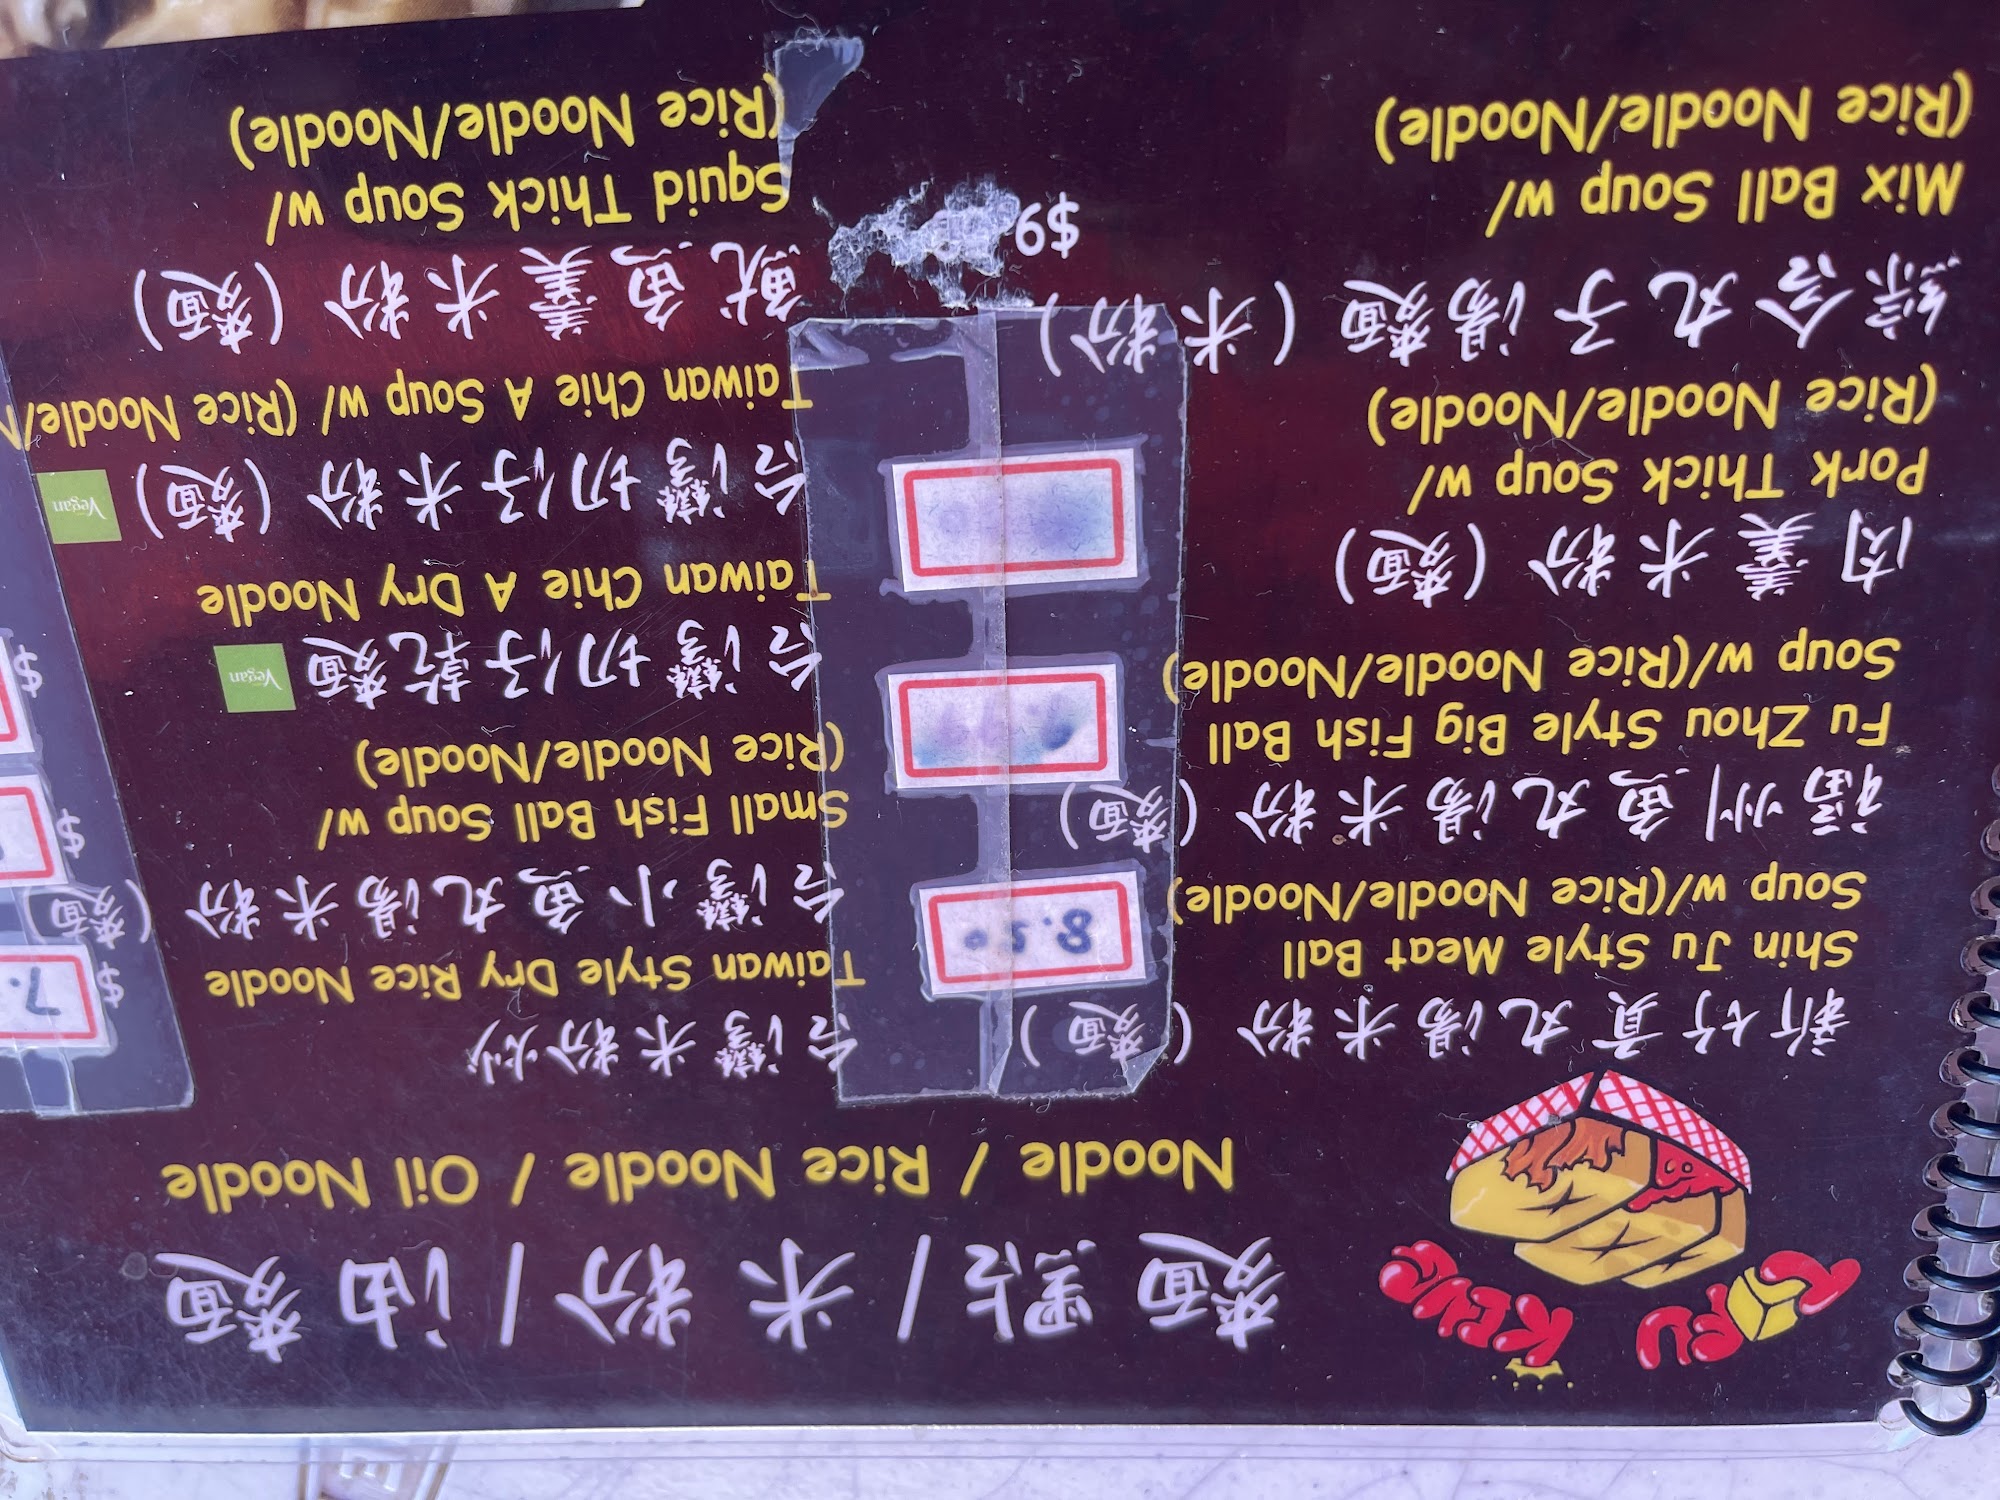 TOFU
麵點/米粉/油麵
Noodle / Rice Noodle / Oil Noodle
新竹貢丸湯米粉 (麵)
Shin Ju Style Meat Ball
Soup w/(Rice Noodle/Noodle)
8.50
福州魚丸湯米粉 (麵)
Fu Zhou Style Big Fish Ball
Soup w/(Rice Noodle/Noodle)
肉羹米粉 (麵)
Pork Thick Soup w/
(Rice Noodle/Noodle)
綜合丸子湯麵 (米粉)
$9
Mix Ball Soup w/
(Rice Noodle/Noodle)
台灣米粉炒
Taiwan Style Dry Rice Noodle
$ 7.
台灣小魚丸湯米粉 (麵)
Small Fish Ball Soup w/
(Rice Noodle/Noodle)
$
台灣切仔乾麵 Vegan
Taiwan Chie A Dry Noodle
$
台灣切仔米粉 (麵) Vegan
Taiwan Chie A Soup w/ (Rice Noodle/N
魷魚羹米粉 (麵)
Squid Thick Soup w/
(Rice Noodle/Noodle)